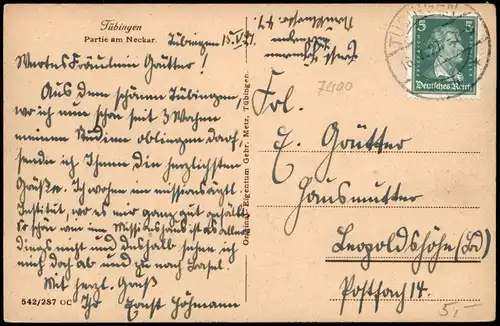 Tübingen
Partie am Neckar.
Tübingen 15.V.27.
Wertes Fräulein Grütter!
Aus dem schönen Tübingen,
wo ich nun schon seit 3 Wochen
meinen Studien obliegen darf,
sende ich Ihnen die herzlichsten
Grüße. Ich wohne im missionsärztl.
Institut, wo es mir ganz gut gefällt.
So schön wie im Missionshaus ist es aller
dings nicht und deshalb sehne ich
mich doch ab und zu nach Basel.
Mit herzl. Gruß
Ihr Ernst Hohmann
542/287 OC
Original-Eigentum Gebr. Metz, Tübingen.
7400
TÜBINGEN
5
5
Deutsches Reich
Frl.
E. Grütter
Hausmutter
Leopoldshöhe (Bd)
Postfach 14.
5,-